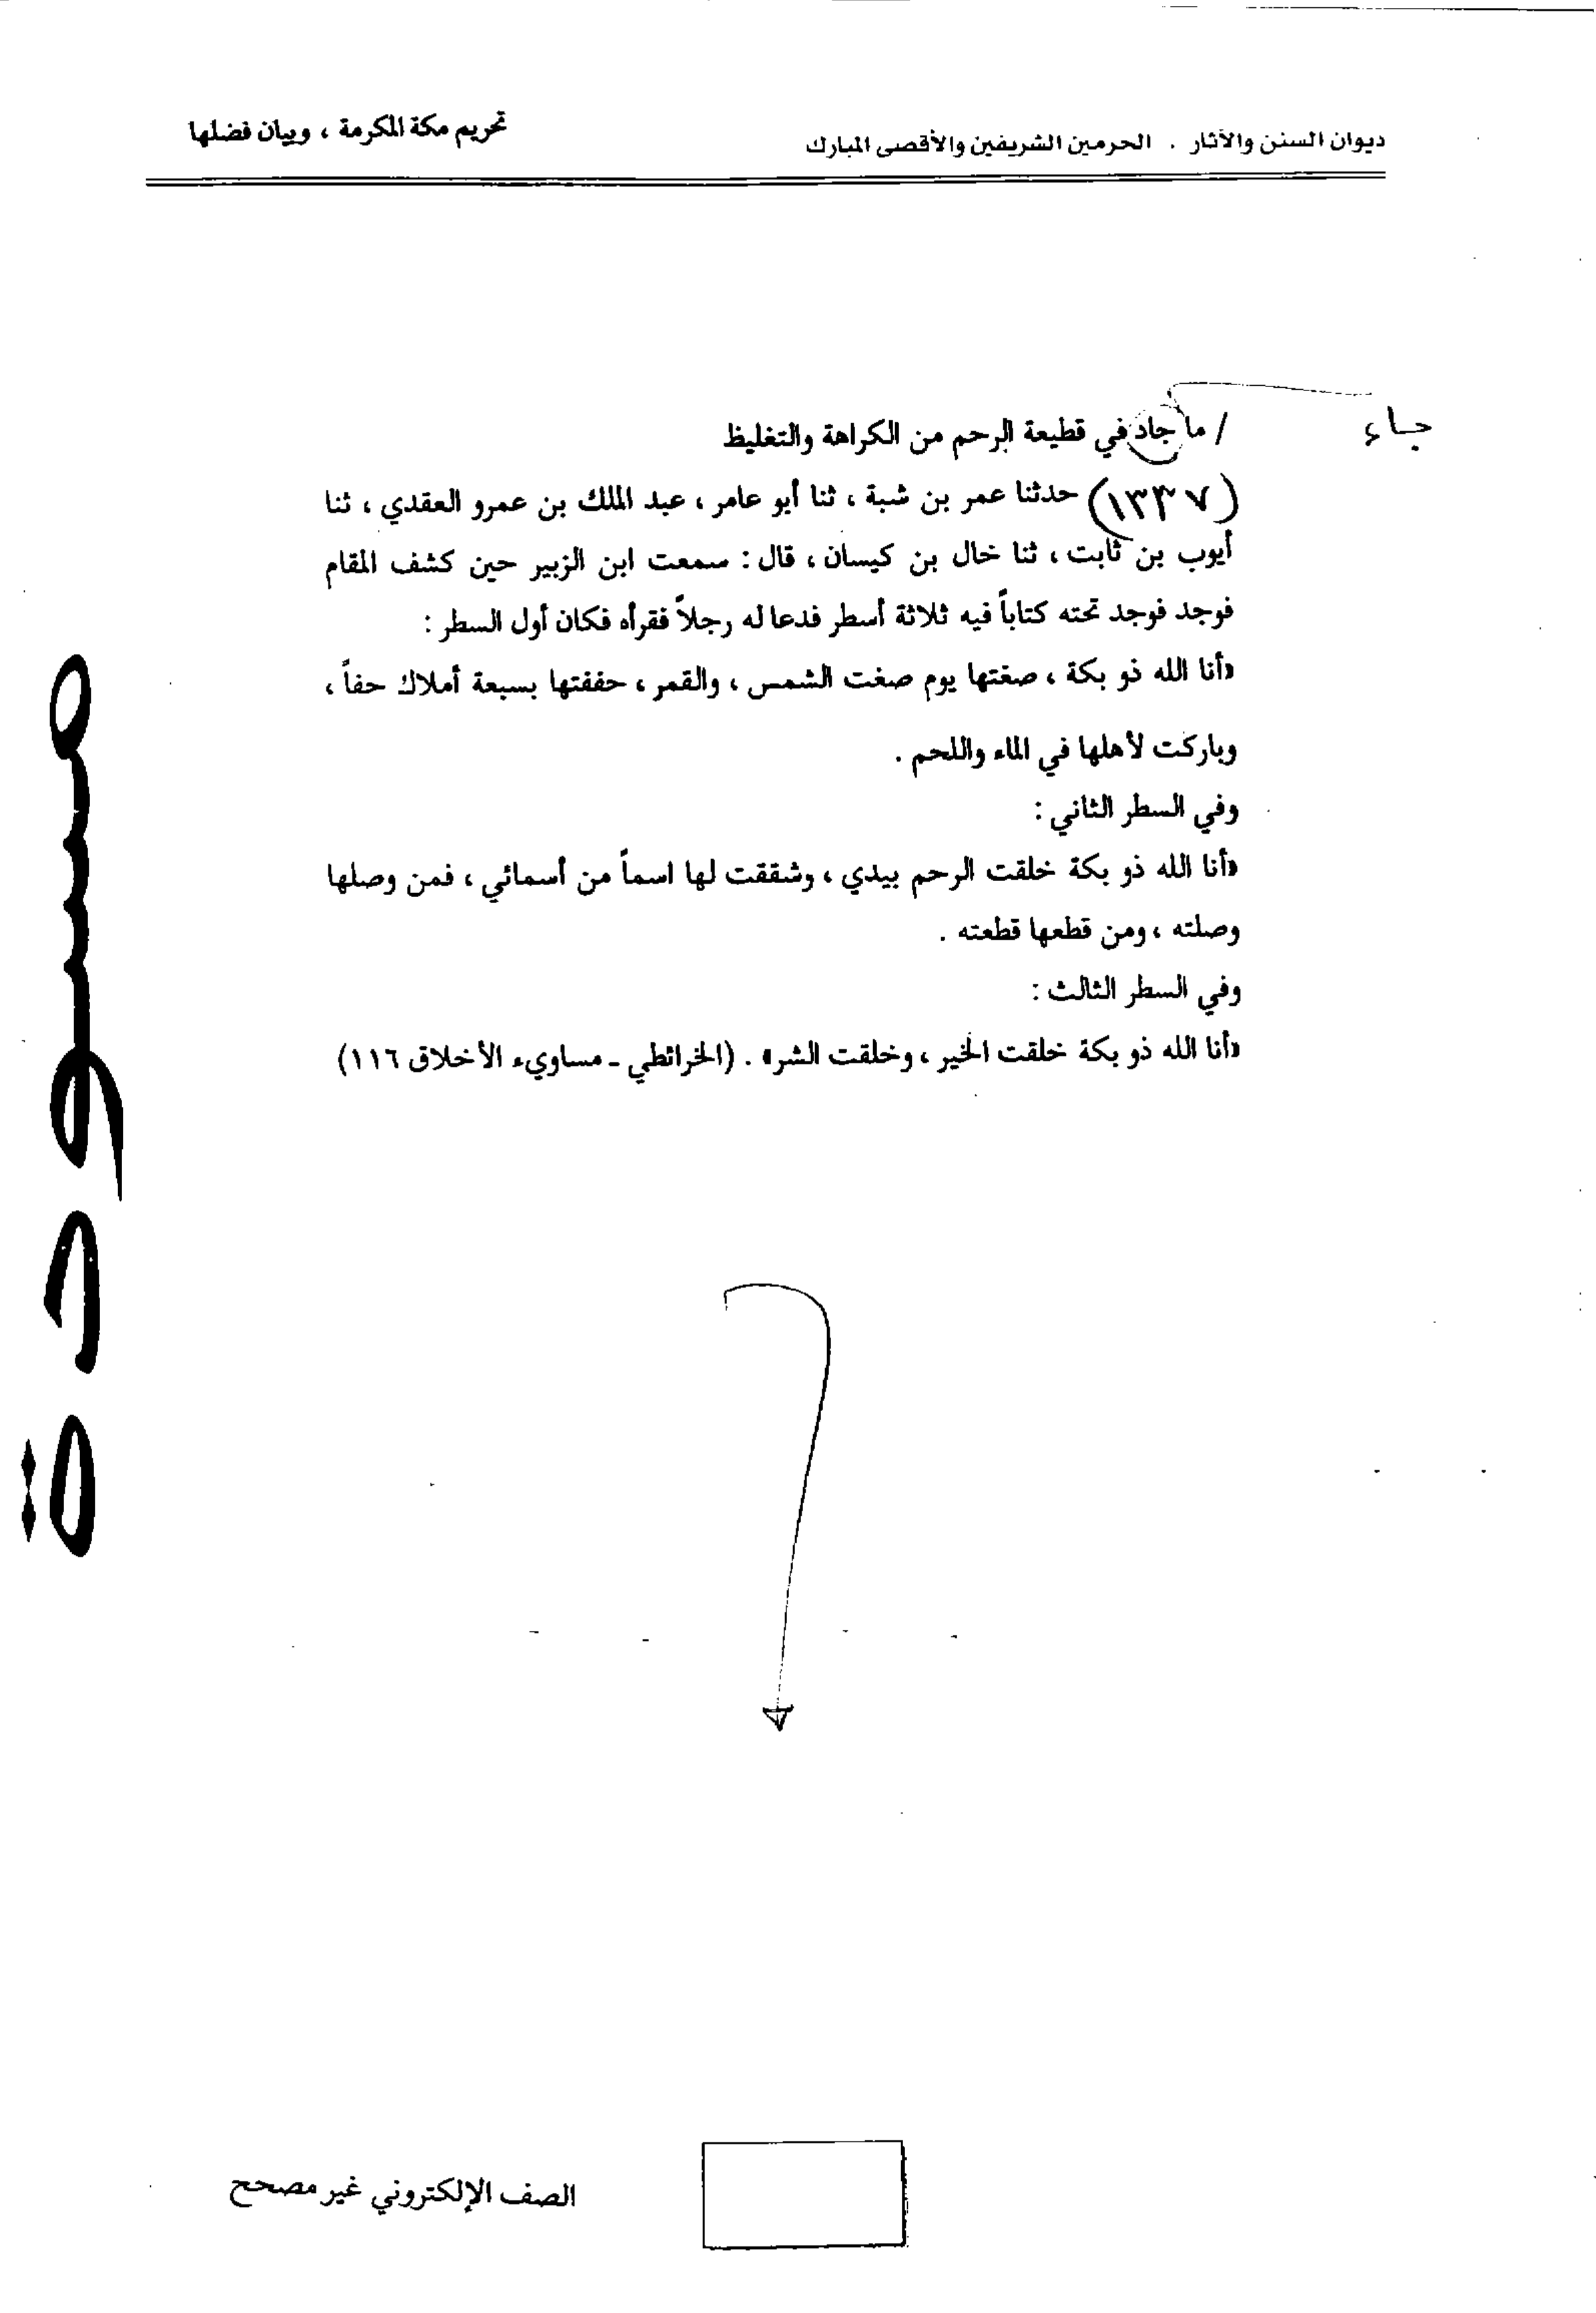 ديوان السنن والآثار . الحرمين الشريفين والأقصى المبارك
تحريم مكة المكرمة ، وبيان فضلها
جاء
/ ما جاد في قطيعة الرحم من الكراهة والتغليظ
(١٣٣٧) حدثنا عمر بن شبة ، ثنا أبو عامر ، عبد الملك بن عمرو العقدي ، ثنا
أيوب بن ثابت ، ثنا خال بن كيسان ، قال : سمعت ابن الزبير حين كشف المقام
فوجد فوجد تحته كتاباً فيه ثلاثة أسطر فدعا له رجلاً فقرأه فكان أول السطر :
«أنا الله ذو بكة ، صغتها يوم صغت الشمس ، والقمر ، حففتها بسبعة أملاك حفاً ،
وباركت لأهلها في الماء واللحم .
وفي السطر الثاني :
«أنا الله ذو بكة خلقت الرحم بيدي ، وشققت لها اسماً من أسمائي ، فمن وصلها
وصلته ، ومن قطعها قطعته .
وفي السطر الثالث :
«أنا الله ذو بكة خلقت الخير ، وخلقت الشر» . (الخرائطي ـ مساويء الأخلاق ١١٦)
مسودة
الصف الإلكتروني غير مصحح